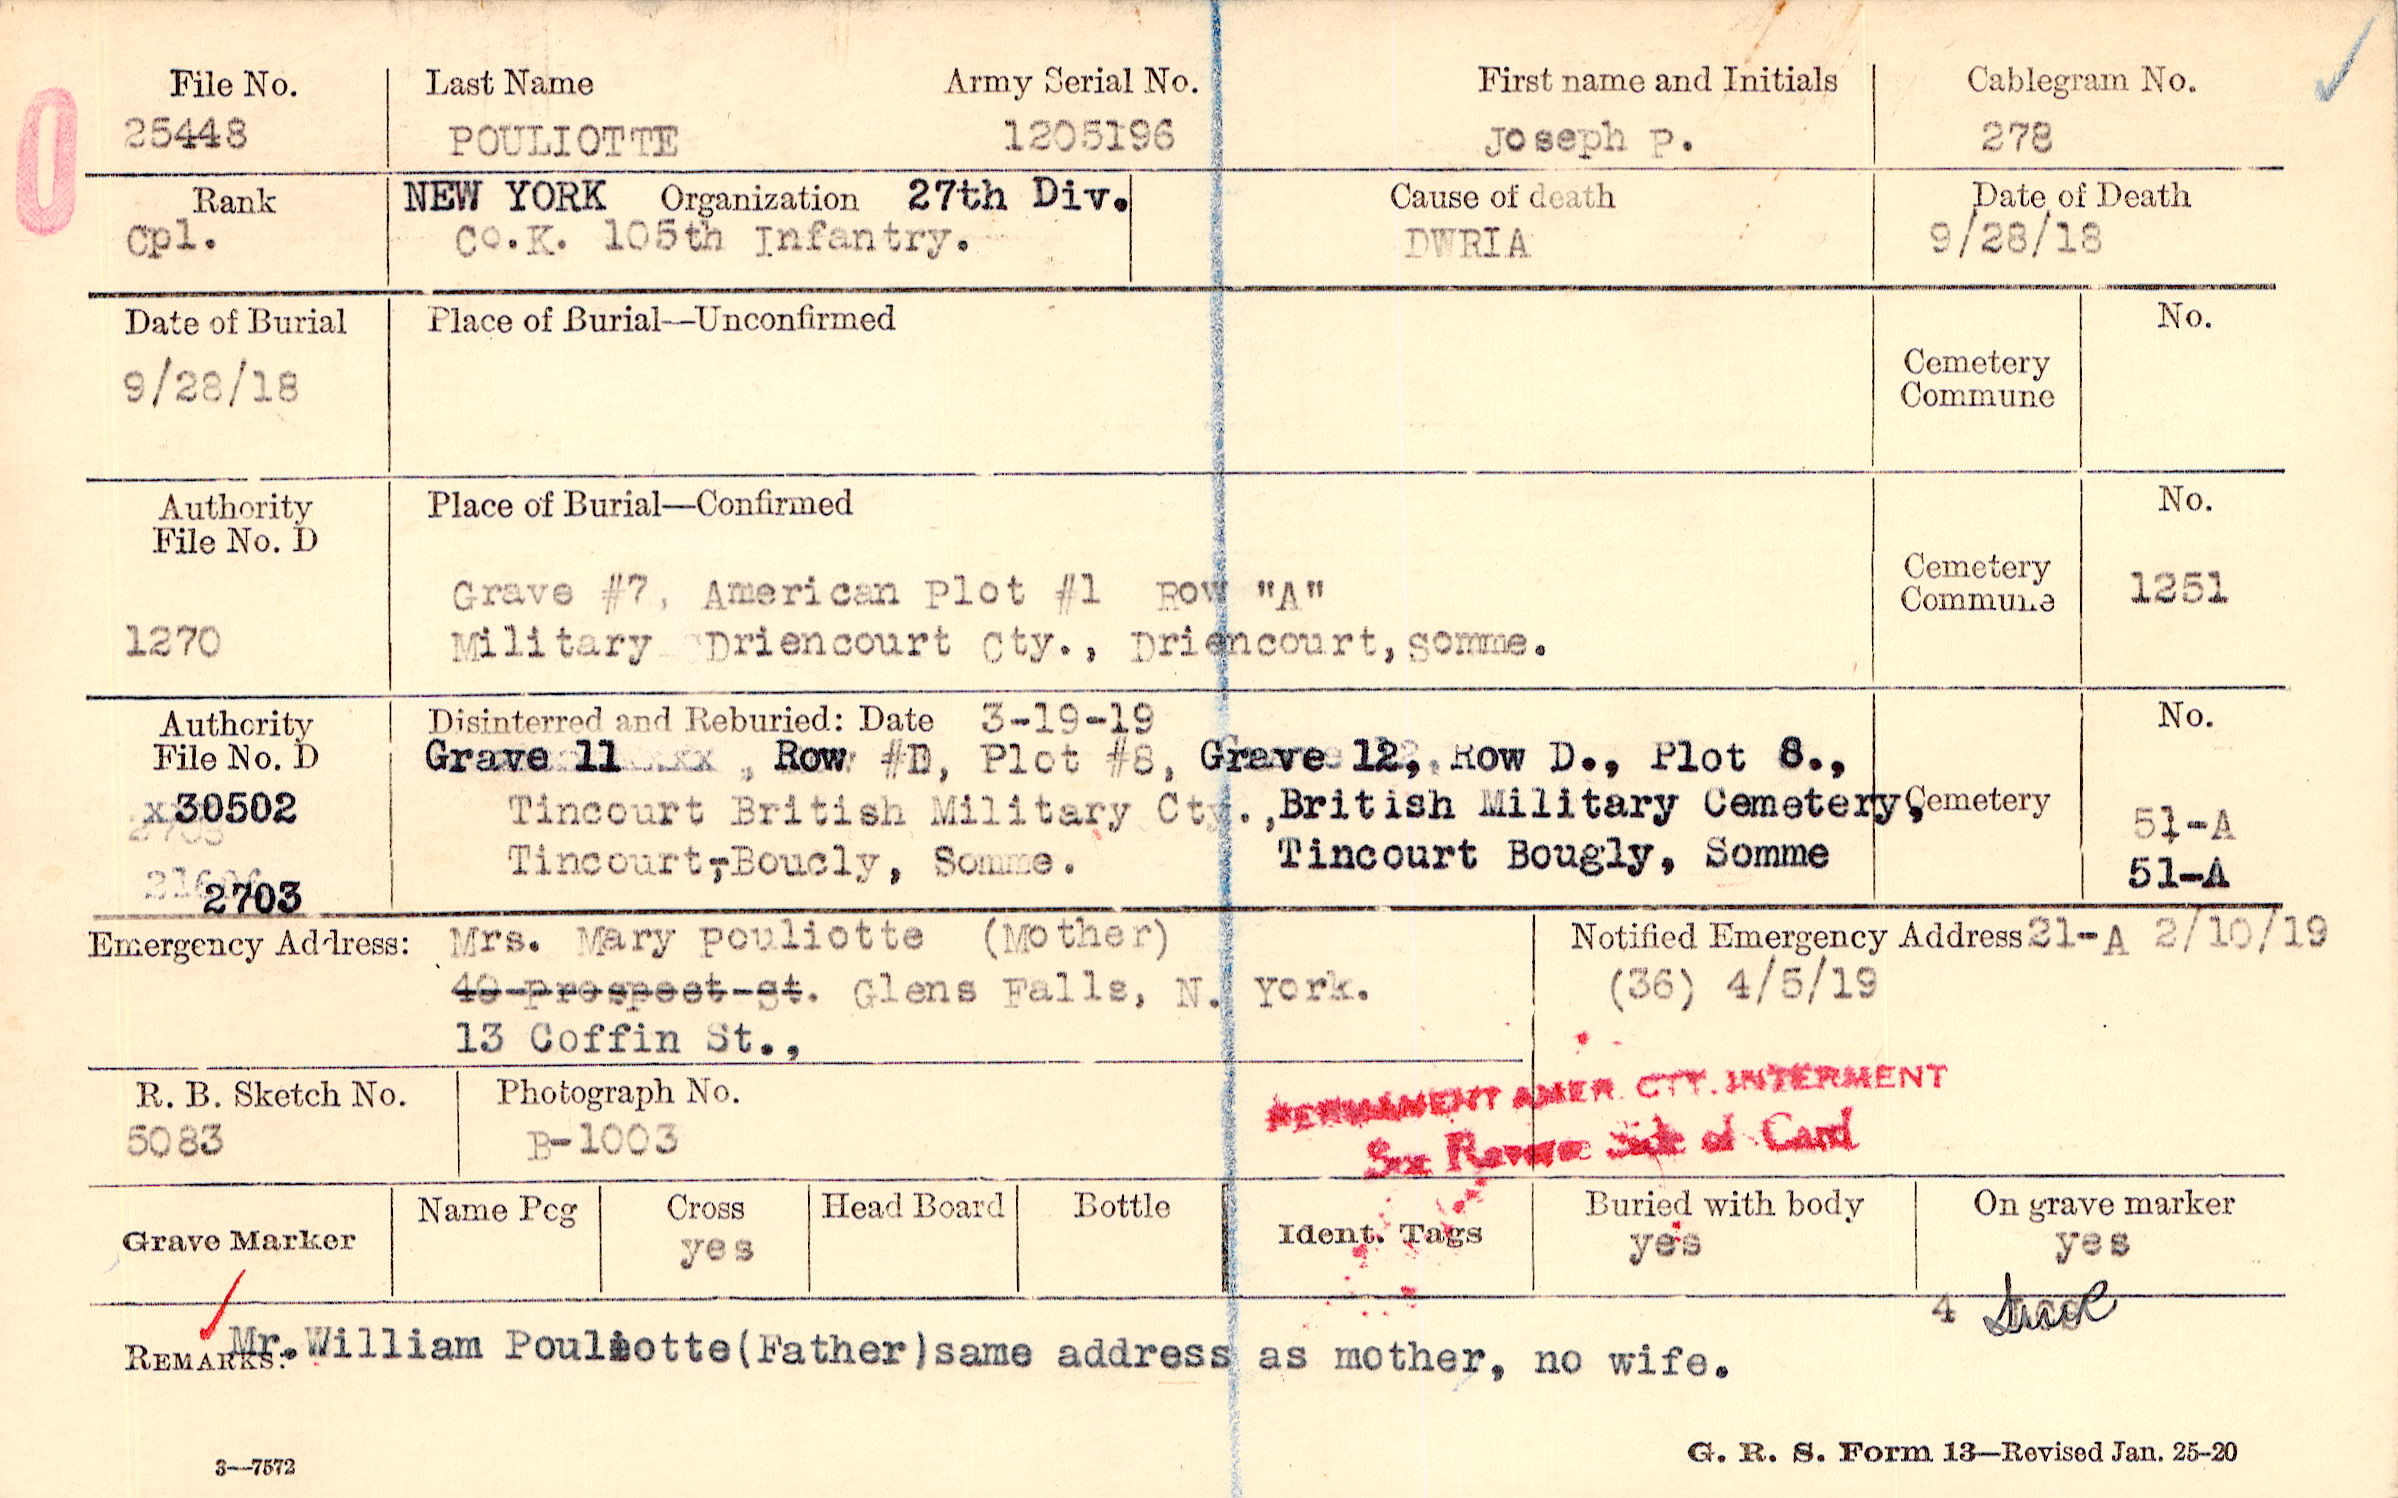 File No. Last Name Army Serial No. First name and Initials Cablegram No.
25448 POULIOTTE 1205196 Joseph P. 278
Rank NEW YORK Organization 27th Div. Cause of death Date of Death
Cpl. Co.K. 105th Infantry. DWRIA 9/28/18
Date of Burial Place of Burial—Unconfirmed No.
9/28/18 Cemetery
Commune
Authority Place of Burial—Confirmed No.
File No. D
Grave #7, American Plot #1 Row "A" Cemetery
Commune 1251
1270 Military Driencourt Cty., Driencourt, Somme.
Authority Disinterred and Reburied: Date 3-19-19 No.
File No. D Grave 11 , Row #D, Plot #8, Grave 12, Row D., Plot 8.,
x30502 Tincourt British Military Cty., British Military Cemetery, Cemetery 51-A
Tincourt,-Boucly, Somme. Tincourt Bougly, Somme 51-A
2703
Emergency Address: Mrs. Mary Pouliotte (Mother) Notified Emergency Address 21-A 2/10/19
40 prospect st. Glens Falls, N. York. (36) 4/5/19
13 Coffin St.,
R. B. Sketch No. Photograph No. PERMANENT AMER. CTY. INTERMENT
5083 B-1003 See Reverse Side of Card
Grave Marker Name Peg Cross Head Board Bottle Ident. Tags Buried with body On grave marker
yes yes yes
4
REMARKS: Mr. William Pouliotte(Father)same address as mother, no wife.
3—7572 G. R. S. Form 13—Revised Jan. 25-20